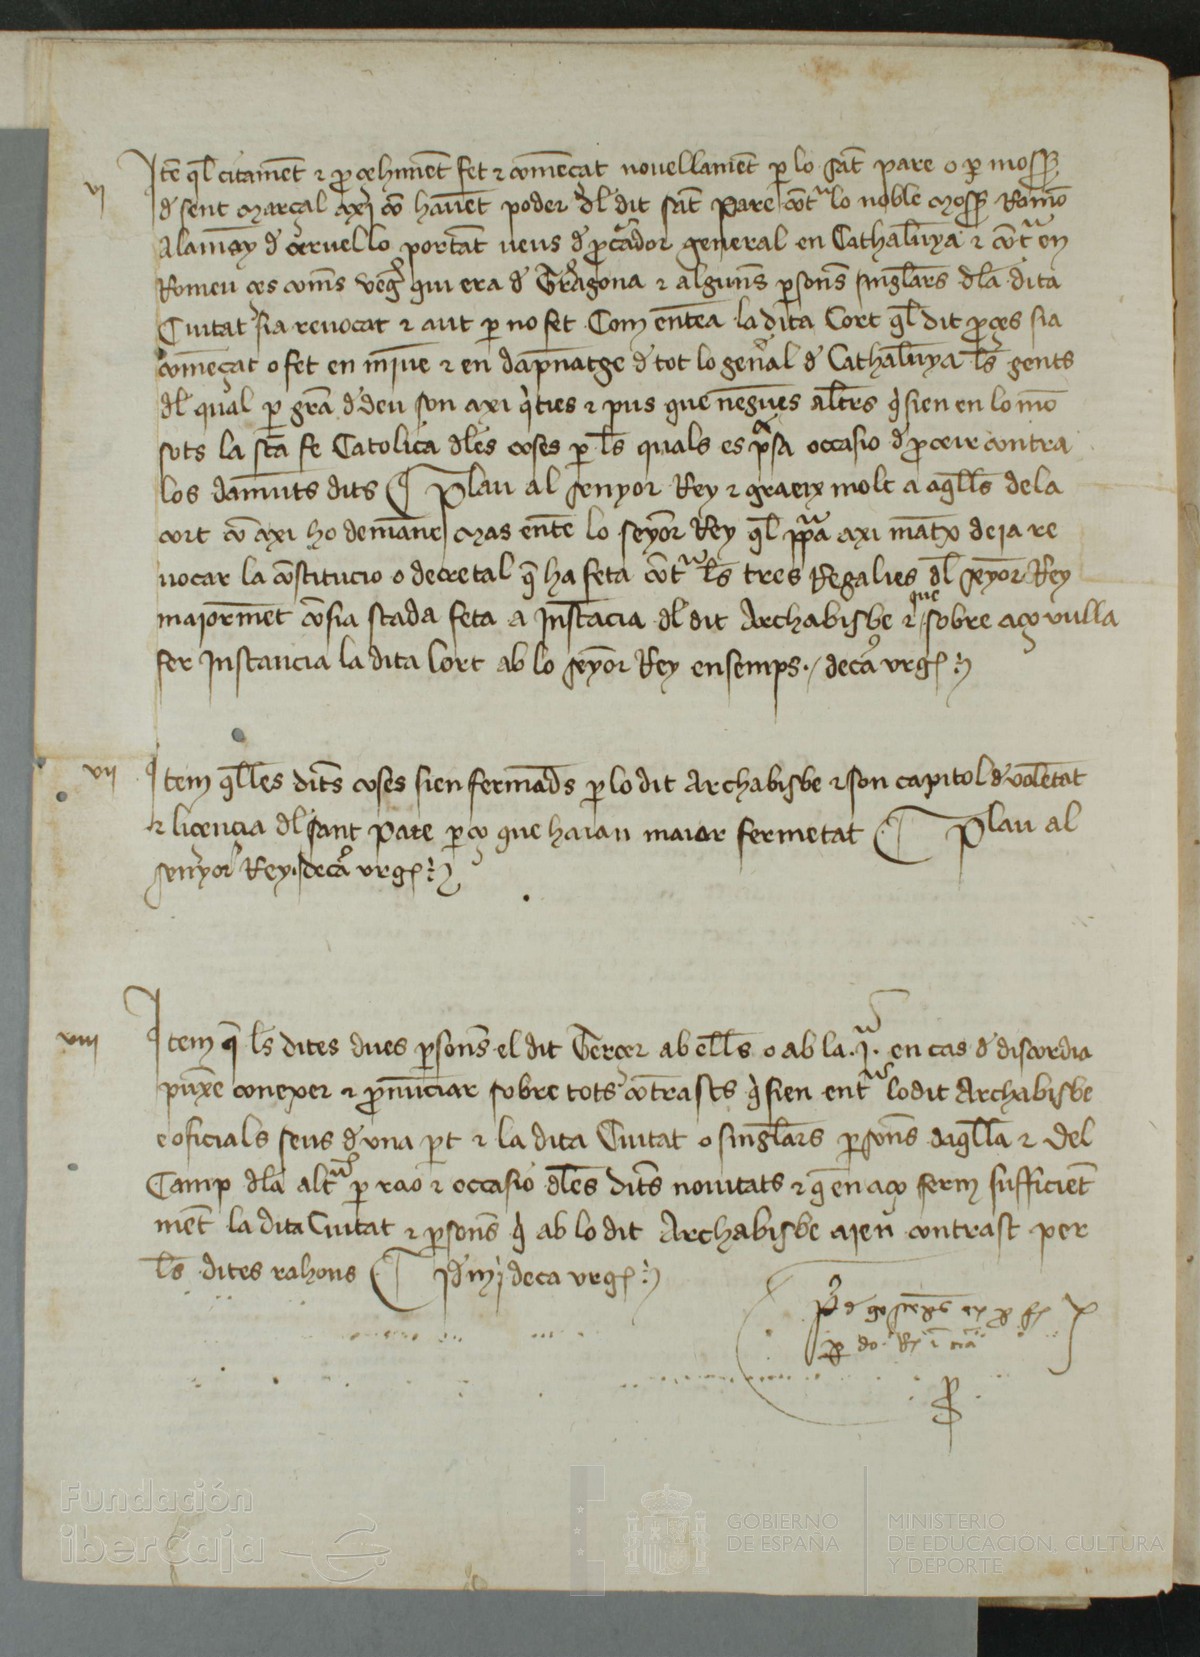 vi
Itē q̄l citamēt ⁊ p̱cehimēt fet ⁊ comēçat nouellamēt p̱ lo sāt pare o p̱ moss̄
d̄ sent març̣al axi cō hauēt poder d̄l dit sāt Pare cōtᵃ lo noble moss̄ Ramō
Alamāy d̄ ceruello portāt ueus d̄ p̱cᵃdor general en Cathaluȳa ⁊ cōtᵃ en
Romeu ces coms̄ veḡ qui era d̄ Tr̄agona ⁊ alguns̄ p̱sons̄ singl̄ars dl̄a dita
Ciutat sia reuocat ⁊ aut p̱ no fet Com entēa la dita Cort q̄l dit p̱ces sia
comēçat o fet en iniūe ⁊ en dāpnatge d̄ tot lo gen̄al d̄ Cathaluȳa l̄s gents
dl̄ qual p̱ grā d̄ deu son axi q̇ties ⁊ pus que negūes alt̄rs q̇ sien en lo mō
sots la stā fe Catolica dl̄es coses p̱ l̄s quals es p̱sa occasio d̄ p̱ceir contra
los damūts dits ¶ Plau al senyor Rey ⁊ graeix molt a aq̄lls de la
cort cō axi ho demānē mas entē lo senȳor Rey q̄l ppᵃ axi matx̄ deia re
uocar la cōstitucio o decretal q̄ ha feta cōtᵃ l̄s tres Regalies dl̄ senȳor Rey
maiormēt cō sia stada feta a Instācia dl̄ dit Archabisbe ⁊ que sobre aço vulla
fer Instancia la dita Cort ab lo senȳor Rey ensemps. / decaº vrgſ
vii
Item q̄ l̄es dits̄ coses sien fermad̄s p̱ lo dit Archabisbe ⁊ son capitol d̄ volētat
⁊ licencia dl̄ sant Pare p̱ço que haian maior fermetat ¶ Plau al
senyor Rey. decaº vrgſ
viii
Item q̄ l̄s dites dues p̱sons̄ el dit Tercer ab ell̄s o ab la .jᵃ. en cas d̄ discordia
puxē conexer ⁊ p̱nūciar sobre tots cōtrasts q̇ sien entᵉ lo dit Archabisbe
e oficials seus d̄ una p̱t ⁊ la dita Ciutat o singl̄ars p̱sons̄ daq̄lla ⁊ del
Camp dl̄a altᵃ p̱ rao ⁊ occasio dl̄es dits̄ nouitats ⁊ q̄ en aço ferm sufficiēt
mēt la dita Ciutat ⁊ p̱sons̄ q̇ ab lo dit Archabisbe aien contrast per
l̄s dites rahons ¶ deca vrgſ